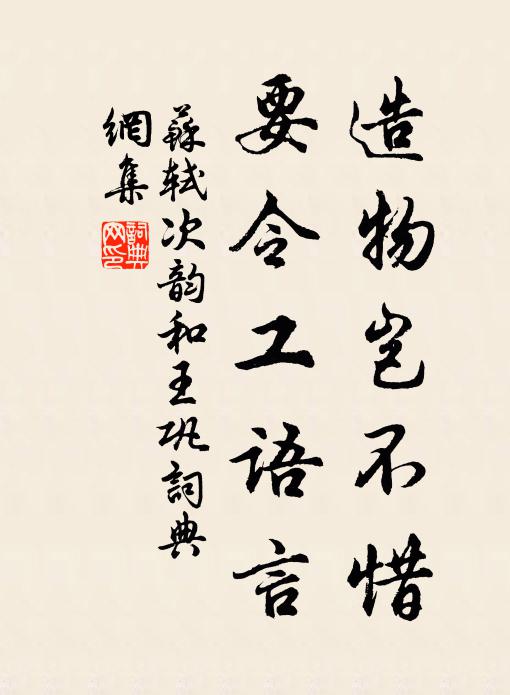 造物岂不惜
要令工語言
蘇轼次韵和王巩詞典
網集
詞典
网印